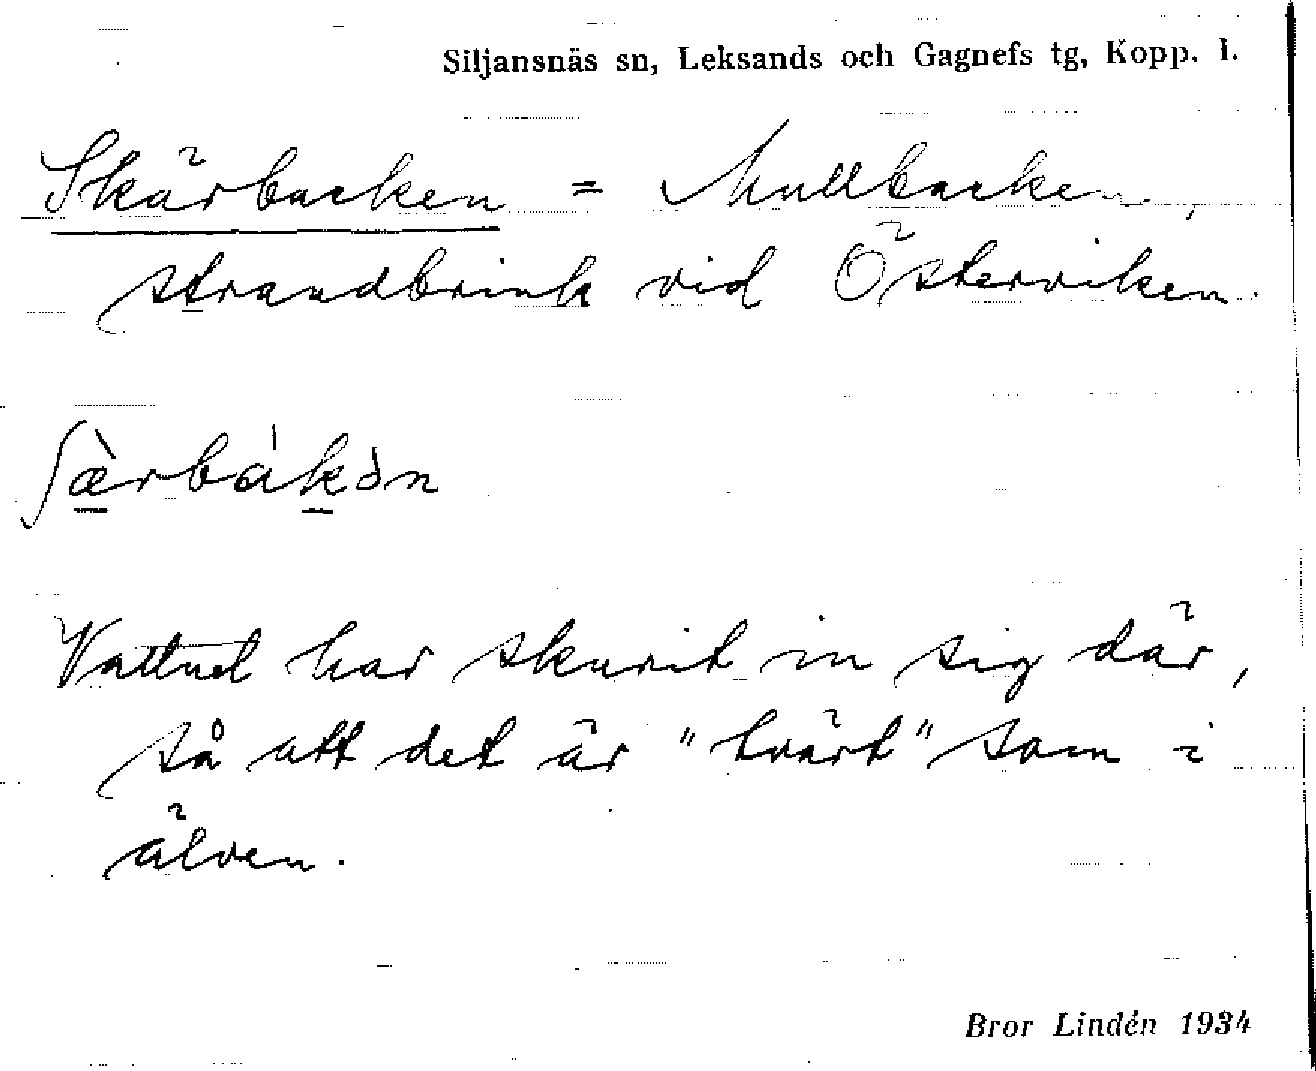 Siljansnäs sn, Leksands och Gagnefs tg, Kopp. l.
Skärbacken = Mullbacken,
strandbrink vid Österviken.
ʃæ̀rbákòn
Vattnet har skurit in sig där,
så att det är "tvärt" som i
älven.
Bror Lindén 1934